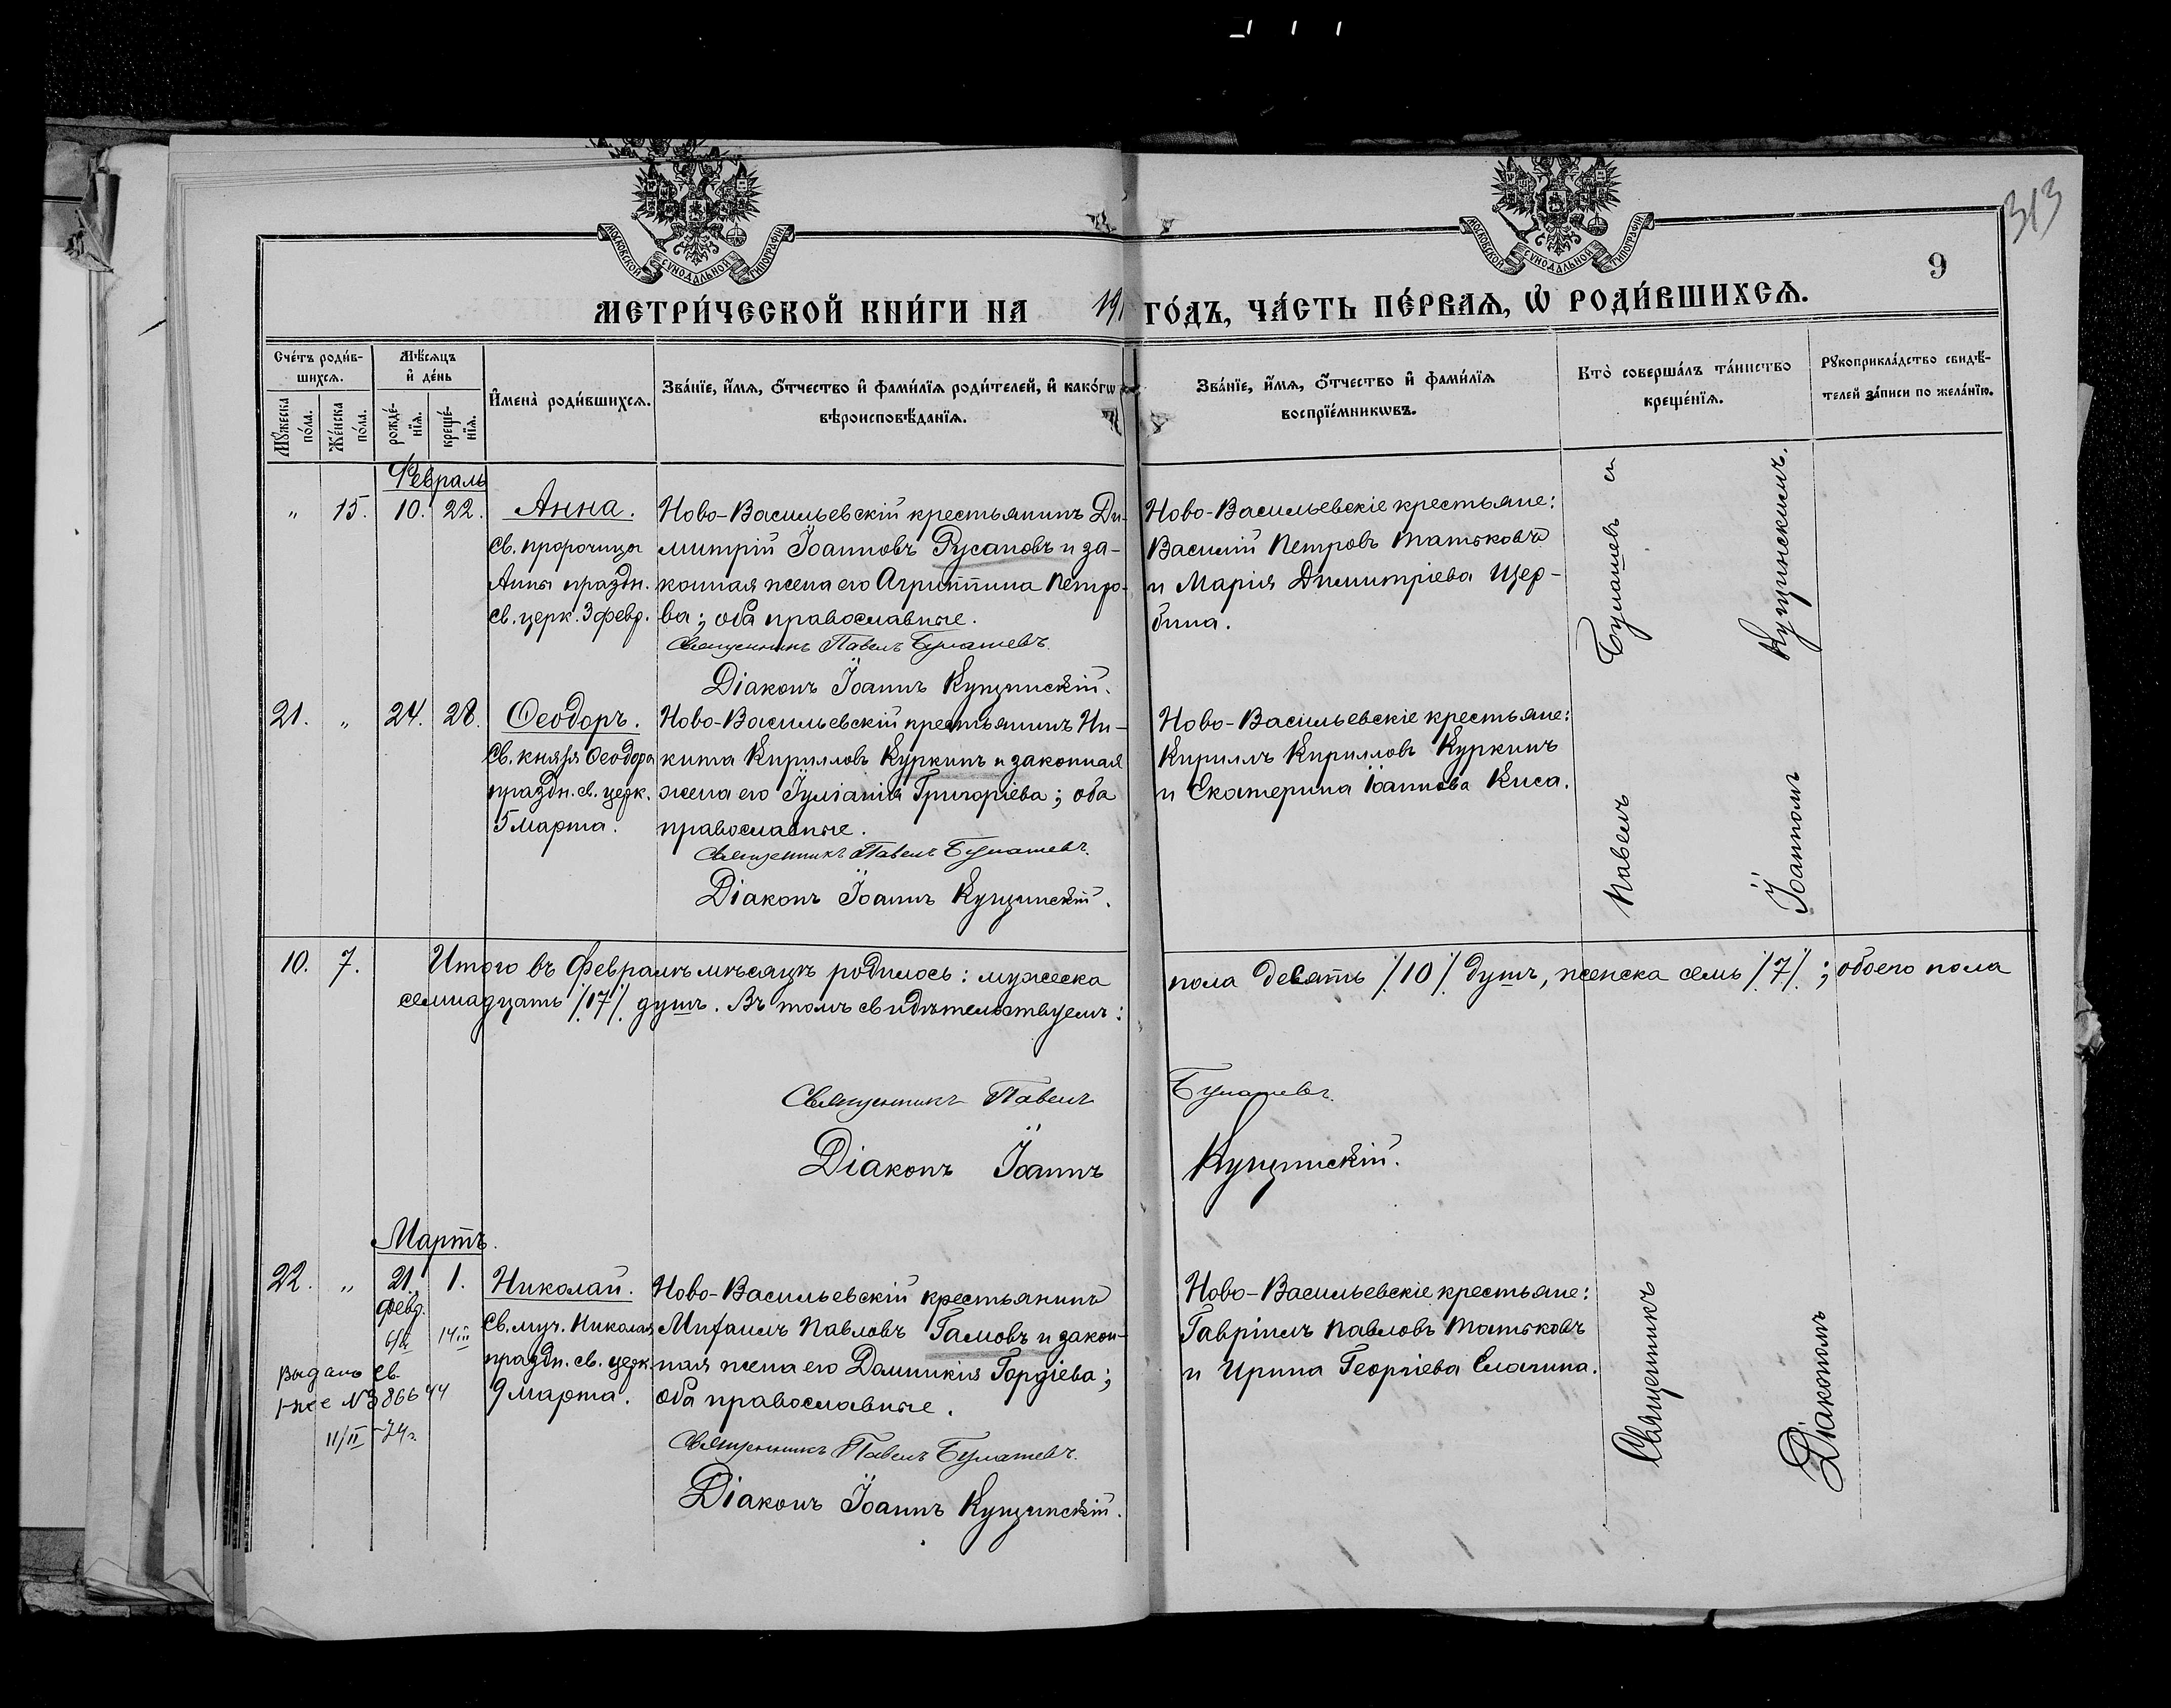 313
9
МОСКОВСКОЙ СѴНОДАЛЬНОЙ ТИПОГРАФІИ
МОСКОВСКОЙ СѴНОДАЛЬНОЙ ТИПОГРАФІИ
МЕТРИ́ЧЕСКОЙ КНИ́ГИ НА 191 ГО́ДЪ, ЧА́СТЬ ПЕ́РВАѦ, Ѡ҆ РОДИ́ВШИХСѦ.
Сче́тъ роди́в-
шихсѧ.
Мꙋ́жеска по́ла.
Же́нска по́ла.
Мѣ́сѧцъ и҆ де́нь
рожде́-нїѧ.
креще́-нїѧ.
И҆мена̀ роди́вшихсѧ.
Зва́нїе, и҆́мѧ, ѻ҆́тчество и҆ фами́лїѧ роди́телей, и҆ како́гѡ
вѣроисповѣ́данїѧ.
Зва́нїе, и҆́мѧ, ѻ҆́тчество и҆ фами́лїѧ
воспрїе́мникѡвъ.
Кто̀ соверша́лъ та́инство
креще́нїѧ.
Рꙋкоприкла́дство свидѣ́-
телей за́писи по жела́нїю.
Февраль
" 15. 10. 22. Анна.
Св. пророчицы
Анны праздн.
св. церк. 3 февр.
Ново-Васильевскій крестьянинъ Ди-
митрій Іоанновъ Русановъ и за-
конная жена его Агриппина Петро-
ва; оба православные.
Священникъ Павелъ Булашевъ.
Діаконъ Іоаннъ Кущинскій.
Ново-Васильевскіе крестьяне:
Василій Петровъ Татьковъ
и Марія Димитріева Щер-
бина.
21. " 24. 28. Ѳеодоръ.
Св. князя Ѳеодора
праздн. св. церк.
5 марта.
Ново-Васильевскій крестьянинъ Ни-
кита Кирилловъ Куркинъ и законная
жена его Іуліанія Григоріева; оба
православные.
Священникъ Павелъ Булашевъ.
Діаконъ Іоаннъ Кущинскій.
Ново-Васильевскіе крестьяне:
Кириллъ Кирилловъ Куркинъ
и Екатерина Іоаннова Киса.
10. 7. Итого въ Февралѣ мѣсяцѣ родилось: мужеска пола девять /10/ душъ, женска семь /7/; обоего пола
семнадцать /17/ душъ. Въ томъ свидѣтельствуемъ:
Священникъ Павелъ Булашевъ.
Діаконъ Іоаннъ Кущинскій.
Мартъ.
22. " 21. 1. Николай.
Февр.
14 III
Св. муч. Николая
праздн. св. церк.
9 марта.
Выдано св.
11/II -74г.
Ново-Васильевскій крестьянинъ
Михаилъ Павловъ Гамовъ и закон-
ная жена его Домникія Гордіева;
оба православные.
Священникъ Павелъ Булашевъ.
Діаконъ Іоаннъ Кущинскій.
Ново-Васильевскіе крестьяне:
Гавріилъ Павловъ Татьковъ
и Ирина Георгіева Елагина.
Священникъ Павелъ Булашевъ съ
Діакономъ Іоанномъ Кущинскимъ.